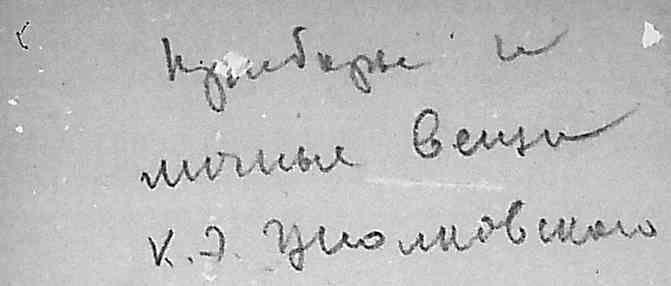 Приборы и
личные вещи
К.Э. Циолковского